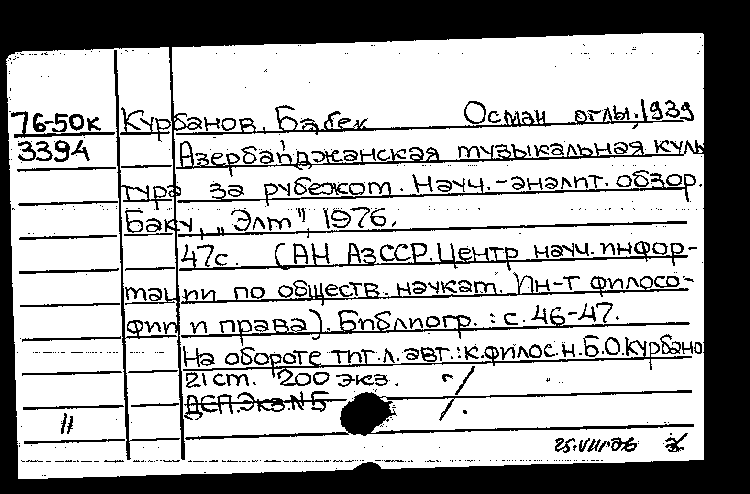 76-50к Курбанов, Бабек Осман оглы, 1939
3394 Азербайджанская музыкальная куль
тура за рубежом. Науч.-аналит. обзор.
Баку, „Элм", 1976.
47с. (АН АзССР. Центр науч. инфор-
мации по обществ. наукам. Ин-т филосо-
фии и права). Библиогр.: с. 46-47.
На обороте тит. л. авт.: к.филос.н. Б.О. Курбано
21 см. 200 экз.
ДСП. Экз. № 5
11
25.VIII 76